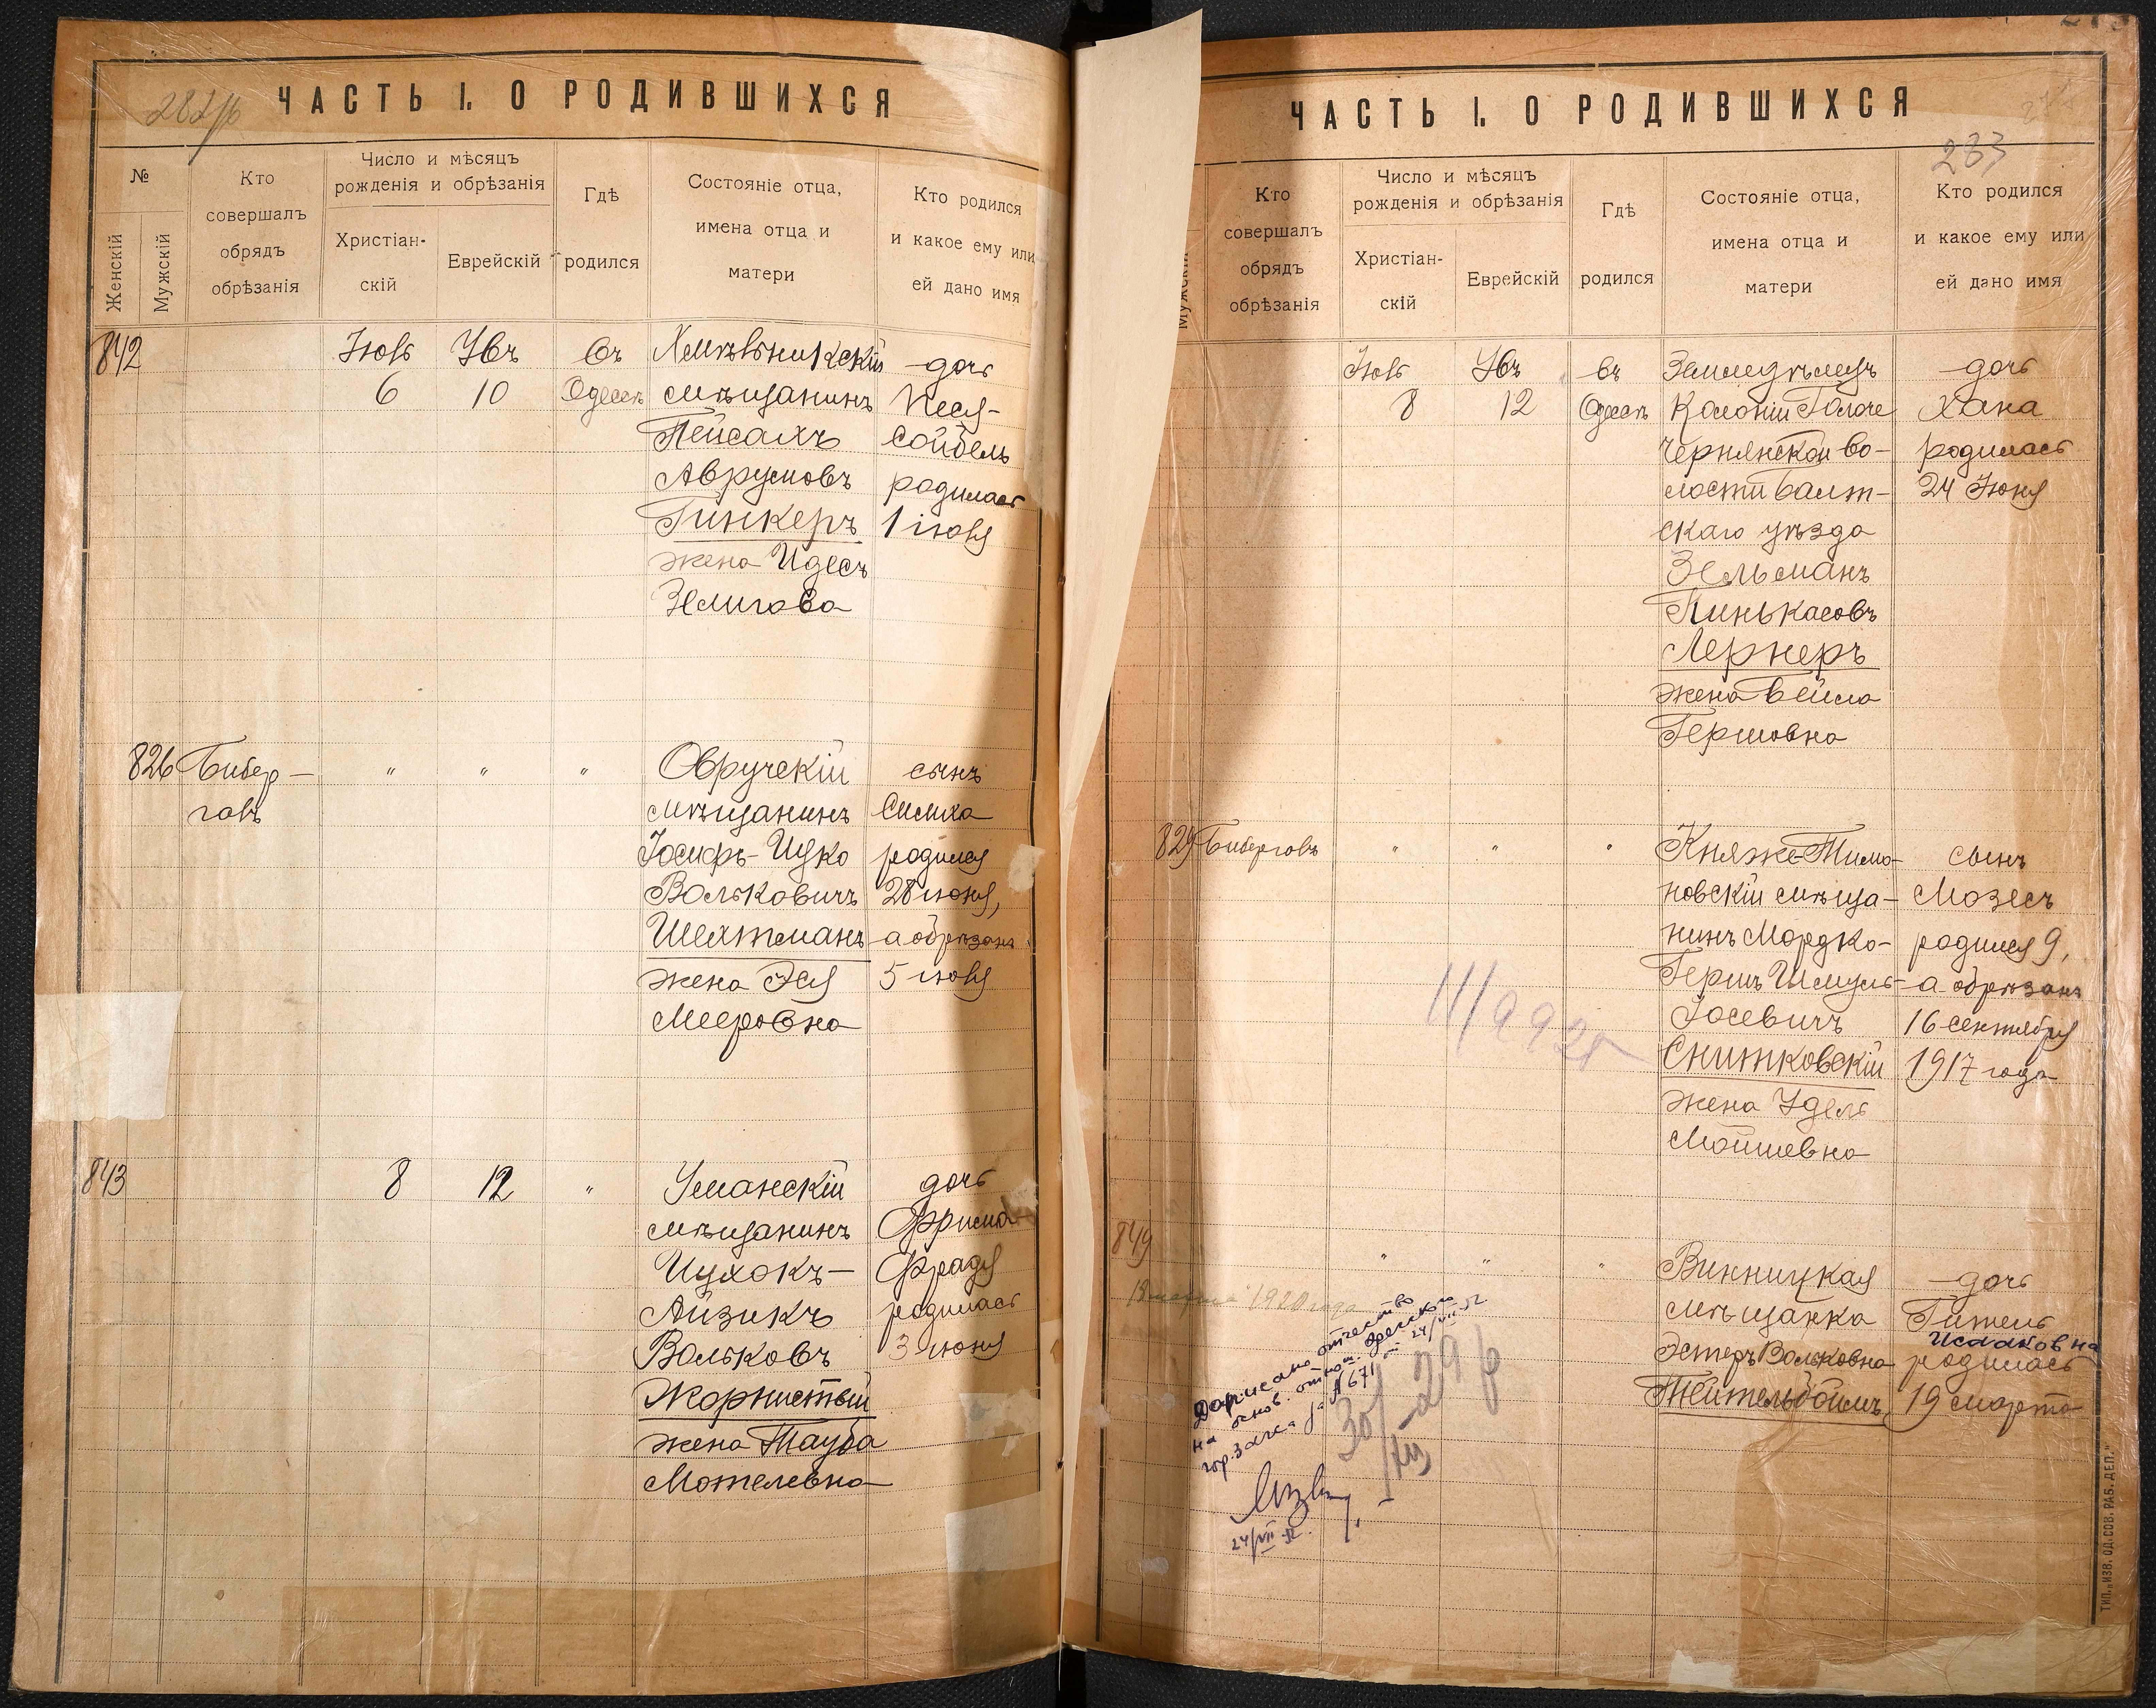 282 об
ЧАСТЬ I. О РОДИВШИХСЯ
№
Женскій
Мужскій
Кто
совершалъ
обрядъ
обрѣзанія
Число и мѣсяцъ
рожденія и обрѣзанія
Христіан-
скій
Еврейскій
Гдѣ
родился
Состояніе отца,
имена отца и
матери
Кто родился
и какое ему или
ей дано имя
842
Іюль
6
10
въ
Одессѣ
Хмѣльникскій
мѣщанинъ
Пейсахъ
Аврумовъ
Гинкеръ
жена Идесъ
Зелигова
дочь
Песя-
Сойбель
родилась
1 іюля
826
Бибер-
галъ
"
"
"
Овручскій
мѣщанинъ
Іосифъ-Ицко
Вольковичъ
Шехтманъ
жена Эся
Мееровна
сынъ
Симха
родился
28 іюня,
а обрѣзанъ
5 іюля
843
8
12
"
Уманскій
мѣщанинъ
Ицхокъ-
Айзикъ
Вольковъ
Жорнистый
жена Тауба
Мотелевна
дочь
Фрима
Фрадя
родилась
3 іюня
ЧАСТЬ I. О РОДИВШИХСЯ
283
Мужскій
Кто
совершалъ
обрядъ
обрѣзанія
Число и мѣсяцъ
рожденія и обрѣзанія
Христіан-
скій
Еврейскій
Гдѣ
родился
Состояніе отца,
имена отца и
матери
Кто родился
и какое ему или
ей дано имя
Іюль
8
12
въ
Одессѣ
Земледѣлецъ
Колоніи
Чернянской во-
лости Балт-
скаго уѣзда
Зельманъ
Пинькасовъ
Лернеръ
жена Бейла
Гершовна
дочь
Хана
родилась
24 Іюня
829
"
"
"
Княже-Тимо-
новскій мѣща-
нинъ Мордко-
Гершъ Шмуль-
Іосевичъ
Снитковскій
жена Удель
Мошевна
сынъ
Мозесъ
родился 9,
а обрѣзанъ
16 сентября
1917 года
849
1920 года
"
"
"
Винницкая
мѣщанка
Эстеръ Вольковна
Тейтельбоимъ
дочь
Гитель
Исааковна
родилась
19 марта
Дописано отчество
на основ. отнош. Одесского
гор. Загса
24/VII-52
24/VII-52.
ТИП. „ИЗВ. ОД. СОВ. РАБ. ДЕП."